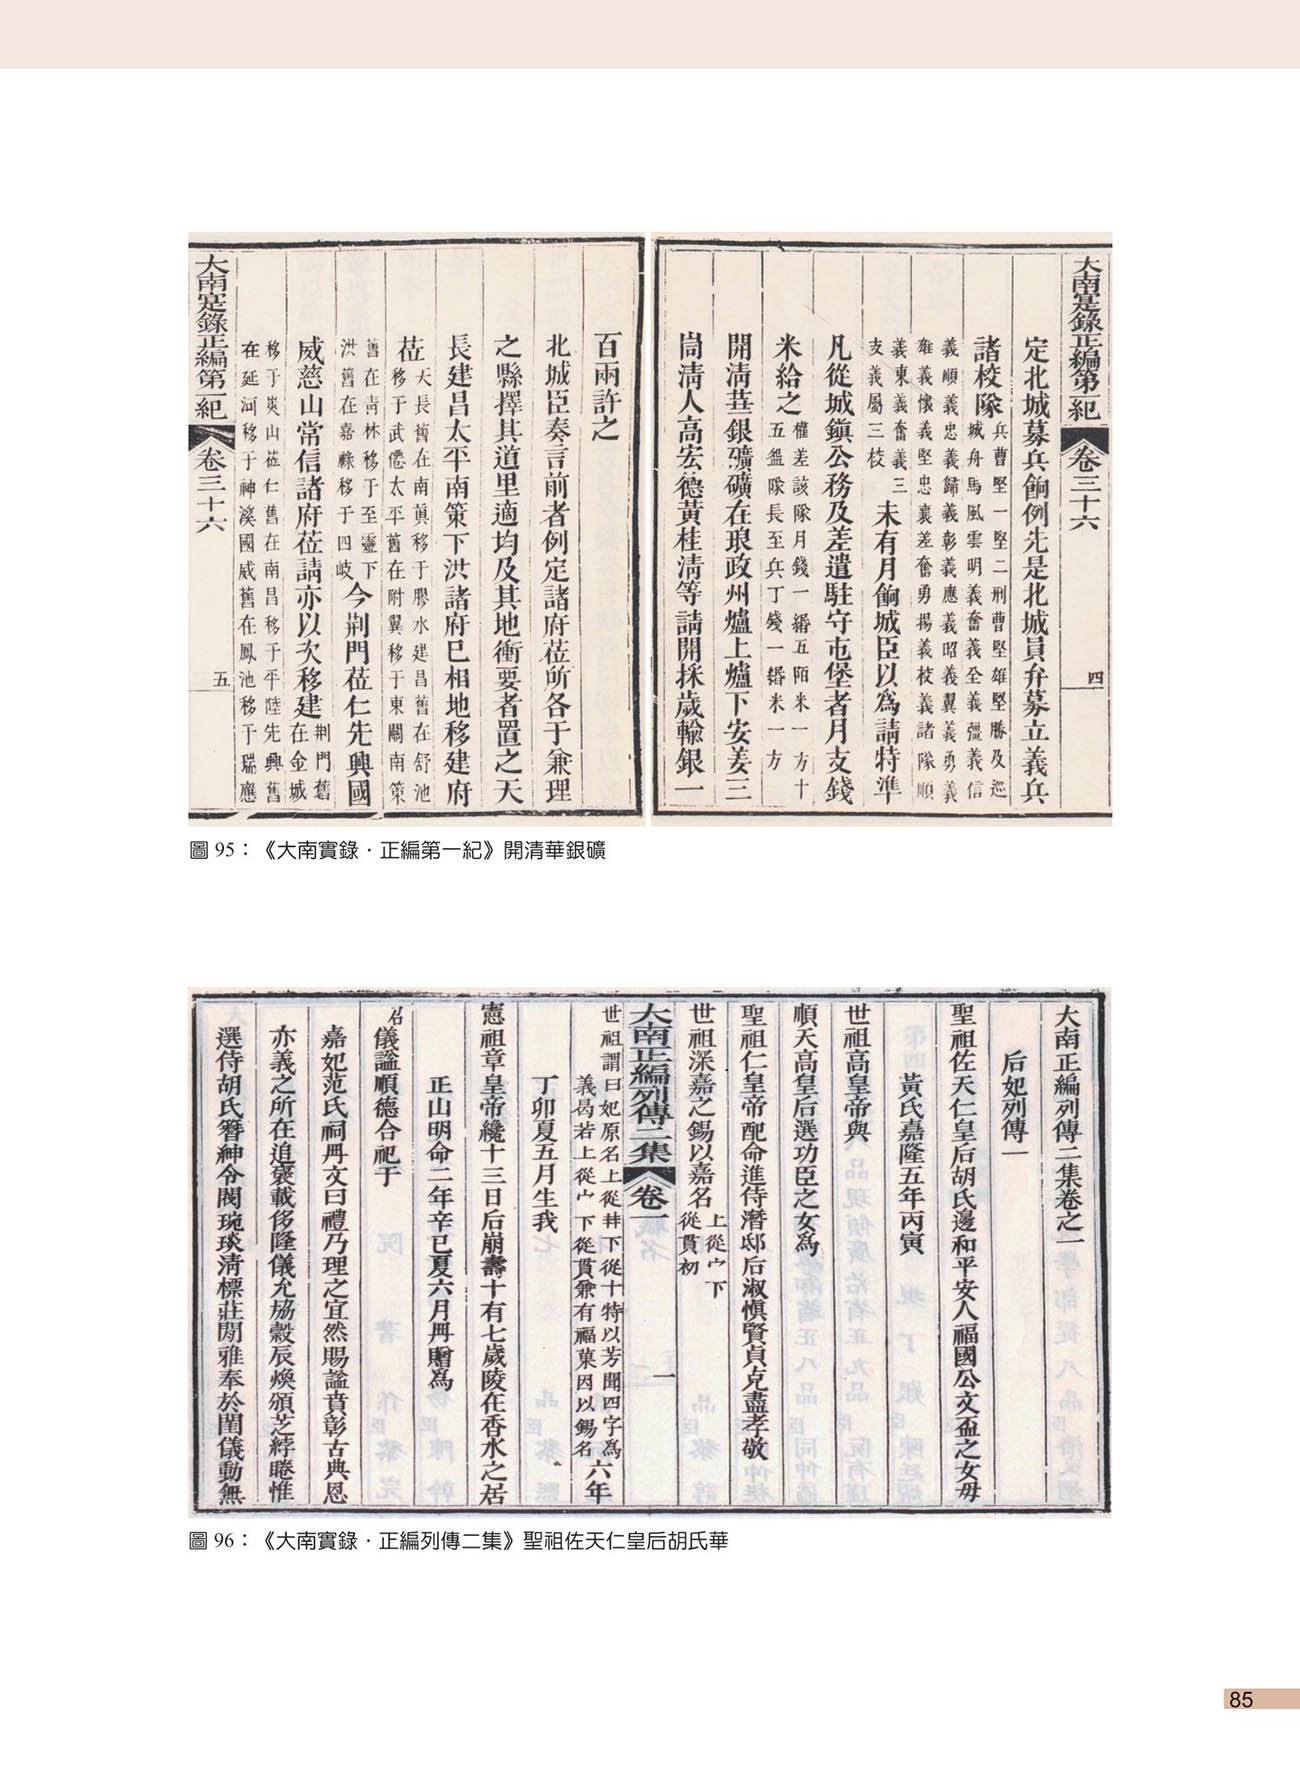 大南寔錄正編第一紀
卷三十六
四
定北城募兵餉例先是北城員弁募立義兵
諸校隊
兵曹堅一堅二刑曹堅雄堅勝及巡
城舟馬風雲明義奮義全義彊義信
義順義忠義歸義彰義應義昭義翼義勇義
雄義懷義堅忠襄差奮勇揚義枝義諸隊順
義東義奮義三
支義屬三枝
未有月餉城臣以為請特準
凡從城鎮公務及差遣駐守屯堡者月支錢
米給之
權差該隊月錢一緡五陌米一方十
五盌隊長至兵丁錢一緡米一方
開清華銀礦礦在琅政州爐上爐下安姜三
峝清人高宏德黃桂清等請開採歲輸銀一
百兩許之
北城臣奏言前者例定諸府莅所各于兼理
之縣擇其道里適均及其地衝要者置之天
長建昌太平南策下洪諸府已相地移建府
莅
天長舊在南真移于膠水建昌舊在舒池
移于武僊太平舊在附翼移于東關南策
舊在青林移于至靈下
洪舊在嘉祿移于四岐
今荆門莅仁先興國
威慈山常信諸府莅請亦以次移建
荆門舊
在金城
移于炭山莅仁舊在南昌移于平陸先興舊
在延河移于神溪國威舊在鳳池移于瑞應
大南寔錄正編第一紀
卷三十六
五
圖 95：《大南實錄．正編第一紀》開清華銀礦
大南正編列傳二集卷之一
后妃列傳一
聖祖佐天仁皇后胡氏邊和平安人福國公文盃之女母
黃氏嘉隆五年丙寅
世祖高皇帝與
順天高皇后選功臣之女為
聖祖仁皇帝配命進侍潛邸后淑慎賢貞克盡孝敬
世祖深嘉之錫以嘉名
上從宀下
從貫初
大南正編列傳二集
卷一
一
世祖謂曰妃原名上從艹下從十特以芳聞四字為
義曷若上從宀下從貫兼有福菓因以錫名
六年
丁卯夏五月生我
憲祖章皇帝纔十三日后崩壽十有七歲陵在香水之居
正山明命二年辛巳夏六月冊贈為
昭儀謚順德合祀于
嘉妃范氏祠冊文曰禮乃理之宜然賜謚賁彰古典恩
亦義之所在追褒載侈隆儀允協穀辰煥頒芝綍睠惟
選侍胡氏簪紳令閥琬琰清標莊閒雅奉於閨儀動無
圖 96：《大南實錄．正編列傳二集》聖祖佐天仁皇后胡氏華
85